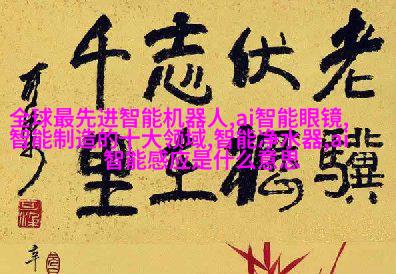 老驥
伏櫪
志在
千里
全球最先进智能机器人,ai智能眼镜,
智能制造的十大领域,智能净水器,ai
智能感应是什么意思
辛